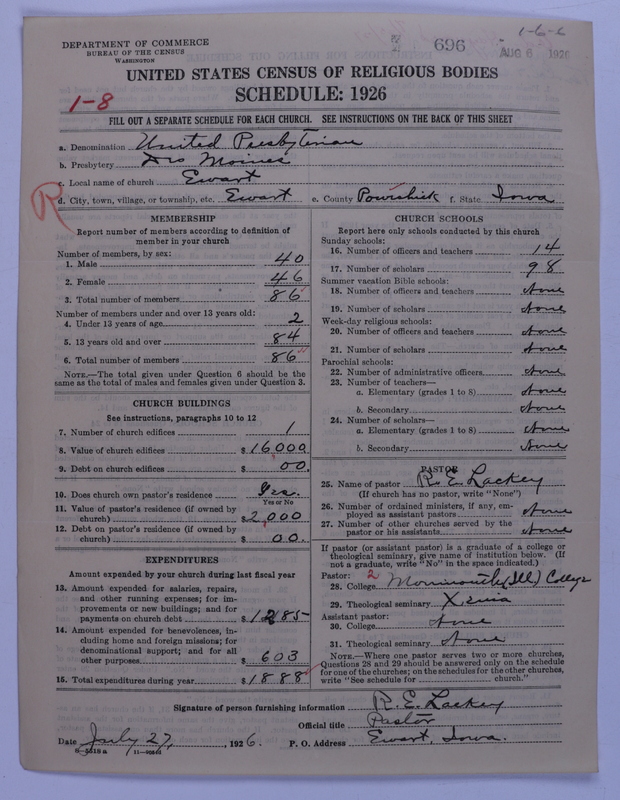 1-6-6
DEPARTMENT OF COMMERCE
BUREAU OF THE CENSUS
WASHINGTON
696
AUG 6 1926
UNITED STATES CENSUS OF RELIGIOUS BODIES
1-8
SCHEDULE: 1926
FILL OUT A SEPARATE SCHEDULE FOR EACH CHURCH. SEE INSTRUCTIONS ON THE BACK OF THIS SHEET
a. Denomination United Presbyterian
b. Presbytery Des Moines
c. Local name of church Ewart
R
d. City, town, village, or township, etc. Ewart e. County Poweshiek f. State Iowa
MEMBERSHIP
Report number of members according to definition of
member in your church
Number of members, by sex:
1. Male 40
2. Female 46
3. Total number of members 86
Number of members under and over 13 years old:
4. Under 13 years of age 2
5. 13 years old and over 84
6. Total number of members 86
NOTE.—The total given under Question 6 should be the
same as the total of males and females given under Question 3.
CHURCH BUILDINGS
See instructions, paragraphs 10 to 12
7. Number of church edifices 1
8. Value of church edifices $16,000
9. Debt on church edifices $ 00.
10. Does church own pastor's residence Yes.
Yes or No
11. Value of pastor's residence (if owned by
church) $2,000
12. Debt on pastor's residence (if owned by
church) $ 00.
EXPENDITURES
Amount expended by your church during last fiscal year
13. Amount expended for salaries, repairs,
and other running expenses; for im-
provements or new buildings; and for
payments on church debt $1285
14. Amount expended for benevolences, in-
cluding home and foreign missions; for
denominational support; and for all
other purposes $603
15. Total expenditures during year $1888
CHURCH SCHOOLS
Report here only schools conducted by this church
Sunday schools:
16. Number of officers and teachers 14
17. Number of scholars 98
Summer vacation Bible schools:
18. Number of officers and teachers None
19. Number of scholars None
Week-day religious schools:
20. Number of officers and teachers None
21. Number of scholars None
Parochial schools:
22. Number of administrative officers None
23. Number of teachers—
a. Elementary (grades 1 to 8) None
b. Secondary None
24. Number of scholars—
a. Elementary (grades 1 to 8) None
b. Secondary None
PASTOR
25. Name of pastor R. E. Lackey
(If church has no pastor, write "None")
26. Number of ordained ministers, if any, em-
ployed as assistant pastors None
27. Number of other churches served by the
pastor or his assistants None
If pastor (or assistant pastor) is a graduate of a college or
theological seminary, give name of institution below. (If
not a graduate, write "No" in the space indicated.)
Pastor: 2
28. College Monmouth (Ill) College
29. Theological seminary Xenia
Assistant pastor:
30. College None
31. Theological seminary None
NOTE.—Where one pastor serves two or more churches,
Questions 28 and 29 should be answered only on the schedule
for one of the churches; on the schedules for the other churches,
write "See schedule for church."
Signature of person furnishing information R. E. Lackey
Official title Pastor
Date July 27, 1926. P. O. Address Ewart, Iowa.